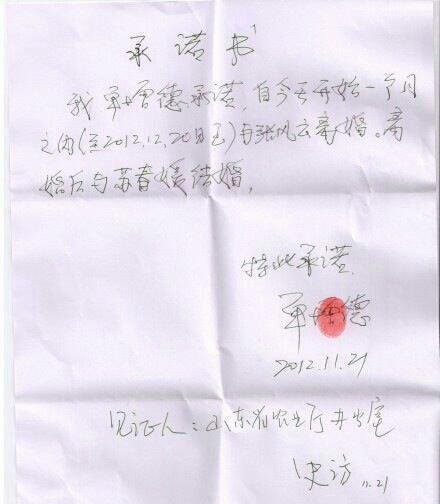 承诺书
我单增德承诺,自今天开始一个月
之内(至2012.12.20日已)与张风云离婚。离
婚后与苏春媛结婚,
特此承诺
单增德
2012.11.21
见证人:山东省农业厅办公室
史访 11.21